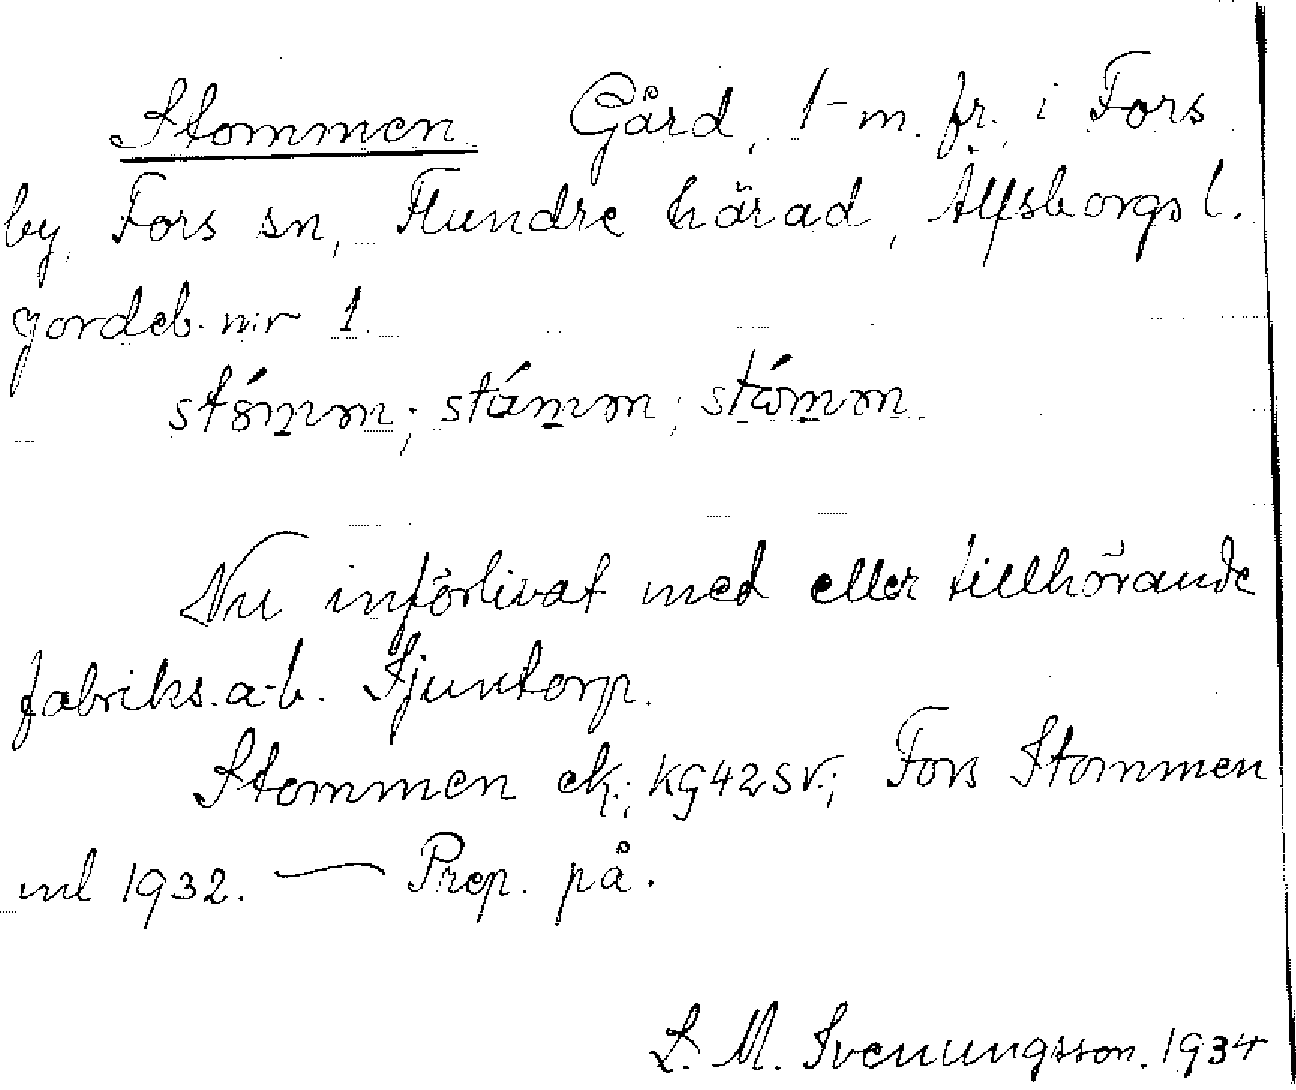 Stommen Gård, 1 m. fr. i Fors
by, Fors sn, Flundre härad, Älfsborgs l.
Jordeb. nr 1.
stómm; stámm; stómm.
Nu införlivat med eller tillhörande
fabriks.a-b. Sjuntorp.
Stommen ek; KG42SV; Fors Stommen
ml 1932. — Prep. på.
L. M. Svenungsson. 1934